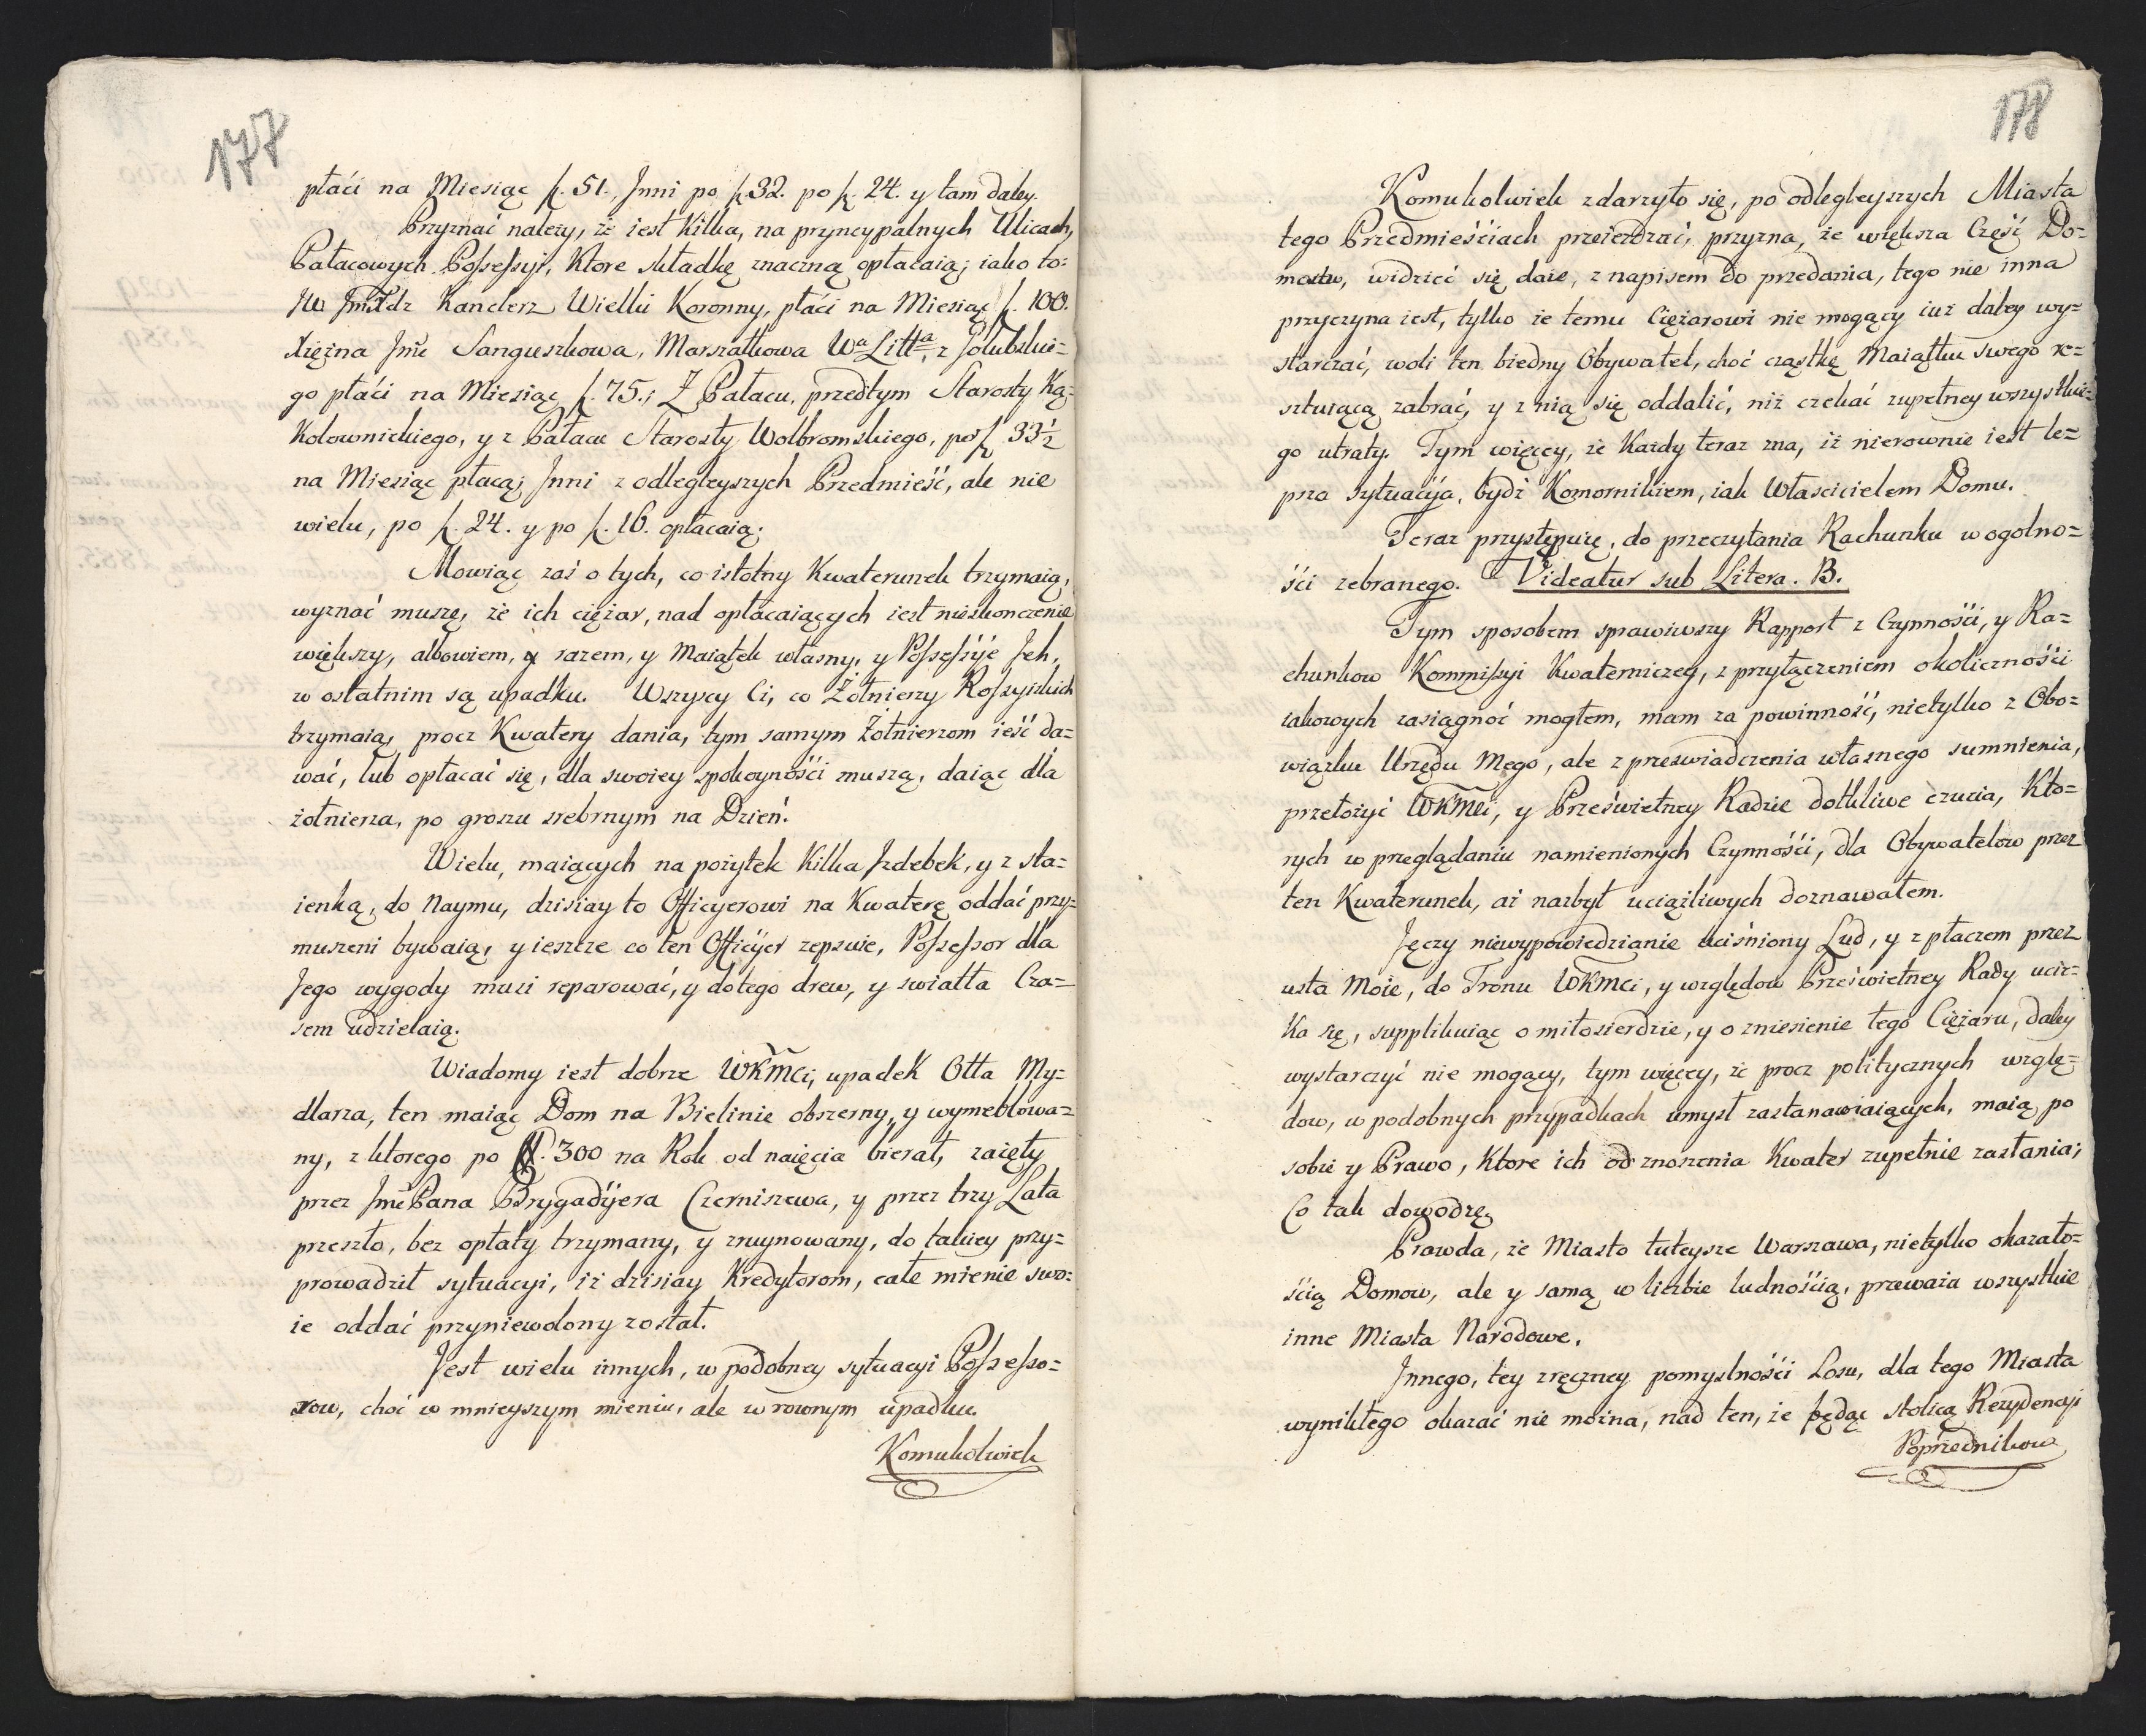 177
płaci na Miesiąc f. 51., Jnni po f. 32. po f. 24. y tam daley.
Przyznać należy, że iest Kilka, na pryncypalnych Ulicach,
Pałacowych Possessyi, Ktore składkę znaczną opłacaią; iako to:
JW Jmć Kanclerz Wielki Koronny, płaci na Miesiąc f. 100.
Xiężna Jmć Sanguszkowa, Marszałkowa Wa Litta, z Jołubskie=
go płaci na Miesiąc f. 75.; Z Pałacu, przedtym Starosty Ką=
kolownickiego, y z Pałacu Starosty Wolbromskiego, po f 33½
na Miesiąc płacą; Jnni z odlegleyszych Przedmieść, ale nie
wielu, po f. 24. y po f. 16. opłacaią.
Mowiąc zaś o tych, co istotny Kwaterunek trzymaią,
wyznać muszę, że ich ciężar, nad opłacaiących iest nieskonczenie
większy, albowiem, y razem, y Maiątek własny, y Possessyie Jch,
w ostatnim są upadku. Wszyscy Ci, co Żołnierzy Rossyiskich
trzymaią, procz Kwatery dania, tym samym Żołnierzom ieść da=
wać, lub opłacać się, dla swoiey spokoyności muszą, daiąc dla
żołnierza, po groszu srebrnym na Dzień.
Wielu, maiących na pożytek Kilka Jzdebek, y z sta=
ienką, do Naymu, dzisiay to Officyerowi na Kwaterę oddać przy=
muszeni bywaią, y ieszcze co ten Officyer zepsuie, Possessor dla
Jego wygody musi reparować, y do tego drew, y swiatła Cza=
sem udzielaią.
Wiadomy iest dobrze WKMCi, upadek Otta My=
dlarza, ten maiąc Dom na Bielinie obszerny, y wymeblowa=
ny, z ktorego po 300 na Rok od naięcia bierał, zaięty
przez Jmć Pana Brygadyiera Czerniszewa, y przez trzy Lata
przeszło, bez opłaty trzymany, y zruynowany, do takiey przy=
prowadził sytuacyi, iż dzisiay Kredytorom, całe mienie swo=
ie oddać przyniewolony został.
Jest wielu innych, w podobney sytuacyi Possesso=
row, choć w mnieyszym mieniu, ale w rownym upadku.
Komukolwiek
178
Komukolwiek zdarzyło się, po odlegleyszych Miasta
tego Przedmieściach przeieżdżać, przyzna, że większa Część Do=
mostw, widzieć się daie, z napisem do przedania, tego nie inna
przyczyna iest, tylko że temu Ciężarowi nie mogący iuż daley wy=
starczać, woli ten biedny Obywatel, choć cząstkę Maiątku swego re=
sztuiącą zabrać, y z nią się oddalić, niż czekać zupełney wszystkie=
go utraty. Tym więcey, że Każdy teraz zna, iż nierownie iest le=
psza sytuacyja, bydź Komornikiem, iak Własci­cielem Domu.
Teraz przystępuię, do przeczytania Rachunku w ogolno=
ści zebranego. Videatur sub Litera. B.
Tym sposobem sprawiwszy Rapport z Czynności, y Ra=
chunkow Kommissyi Kwaterniczey, z przyłączeniem okoliczności
iakowych zasiągnoć mogłem, mam za powinność, nietylko z Obo=
wiązku Urzędu Mego, ale z przeswiadczenia własnego sumnienia,
przełożyć WKMCi, y Prześwietney Radzie dotkliwe czucia, Kto=
rych w przeglądaniu namienionych Czynności, dla Obywatelow przez
ten Kwaterunek, aż nazbyt uciążliwych doznawałem.
Jęczy niewypowiedzianie uciśniony Lud, y z płaczem przez
usta Moie, do Tronu WKMCi, y względow Prześwietney Rady ucie=
ka się, supplikuiąc o miłosierdzie, y o zniesienie tego Ciężaru, daley
wystarczyć nie mogący, tym więcey, że procz politycznych wzglę=
dow, w podobnych przypadkach umysł zastanawiaiących, maią po
sobie y Prawo, Ktore ich od znoszenia Kwater zupełnie zasłania;
Co tak dowodzę,
Prawda, że Miasto tuteysze Warszawa, nietylko okazało=
ścią Domow, ale y samą w liczbie ludnością, przeważa wszystkie
inne Miasta Narodowe.
Jnnego, tey zręczney pomyslności Losu, dla tego Miasta
wynikłego okazać nie można, nad ten, że będąc stolicą Rezydencyi
Poprzednikow